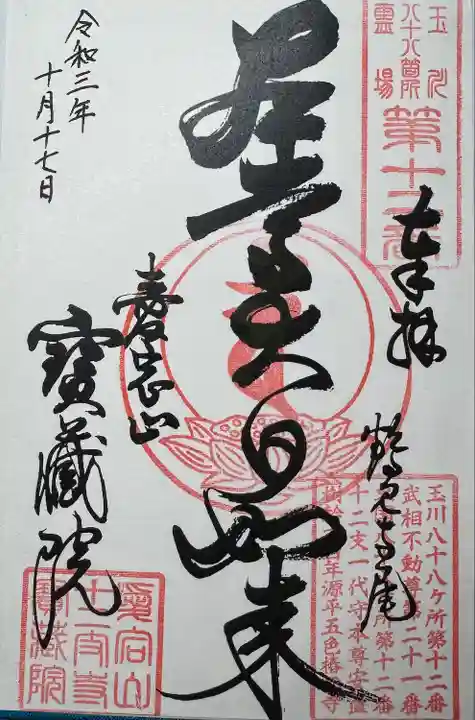 玉川
八十八箇所
靈場
第十二番
奉拝
鶴見寺尾
大日如来
愛宕山
寳藏院
令和三年
十月十七日
玉川八十八ヶ所第十二番
武相不動尊第二十一番
所第十二番
十二支一代守本尊安置
樹齢 百年源平五色椿 寺
愛宕山
寶藏院